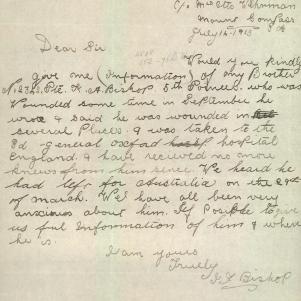 c/o Mrs Otto Wehrmann
Mount Compass
July 14 1915 S A
Dear Sir
Would you kindly
give me (Information) of my Brother
Pte. K. A. Bishop 5th Pioneers. who was
Wounded some time in September he
wrote & said he was wounded in
several Places. & was taken to the
3d general oxford hospital
England. & have recieved no more
knews from him since. We heard he
had left for Australia on the 29th
of march. We have all been very
anxious about him. If Posible to give
us ful Information of him & where
he is.
I am yours
Truely
Bishop